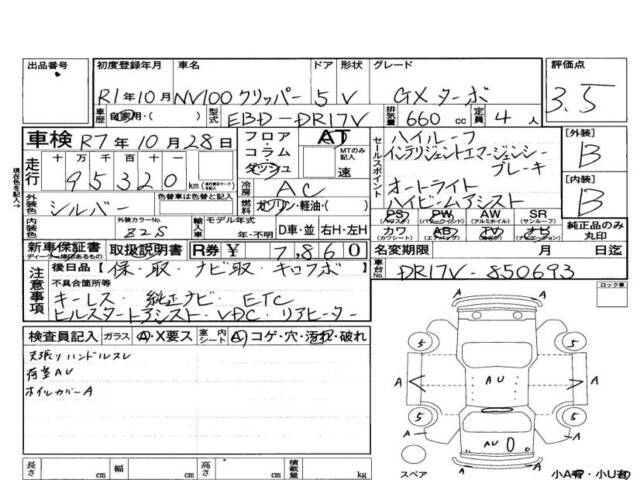 出品番号 初度登録年月 車名 ドア 形状 グレード 評価点
R1年10月 NV100クリッパー 5 V GXターボ 3.5
車歴 自家用・( ) 型式 EBD-DR17V 排気量 660cc 定員 4人
車検 R7年10月28日 フロア・コラム・ダッシュ AT MTのみ記入 速
走行 十万 万 千 百 十 一
95320 km
冷房 AC
外装色 シルバー 色替車は色替と記入 燃料 ガソリン・軽油・( )
内装色 外装カラーNo. Z2S 輸入車 モデル年式 年・不明 D車・並 右H・左H
セールスポイント
ハイルーフ
インテリジェントエマージェンシー
ブレーキ
オートライト
ハイビームアシスト
[外装] B
[内装] B
PS PW AW SR
(パワーウインド) (アルミホイル) (サンルーフ)
カワ AB TV ナビ
(カワシート) (エアバック)
純正品のみ丸印
新車保証書 取扱説明書 R券 ¥ 7,860
名変期限 月 日迄
車台No. DR17V-850693
現在色を記入
注意事項
後日品 [保・取・ナビ取・キロフボ]
不具合箇所等
キーレス・純正ナビ・ETC
ヒルスタートアシスト・VDC・リアヒーター
ロック車
検査員記入 ガラス A・X要ス 室内 シート A コゲ・穴・汚れ・破れ
天張り ハンドルスレ
荷室AU
ホイルカバーA
A A A A
5 5 5 5
AU
AU
長さ cm 幅 cm 高さ cm 積載量 kg
スペア
小A有・小U有